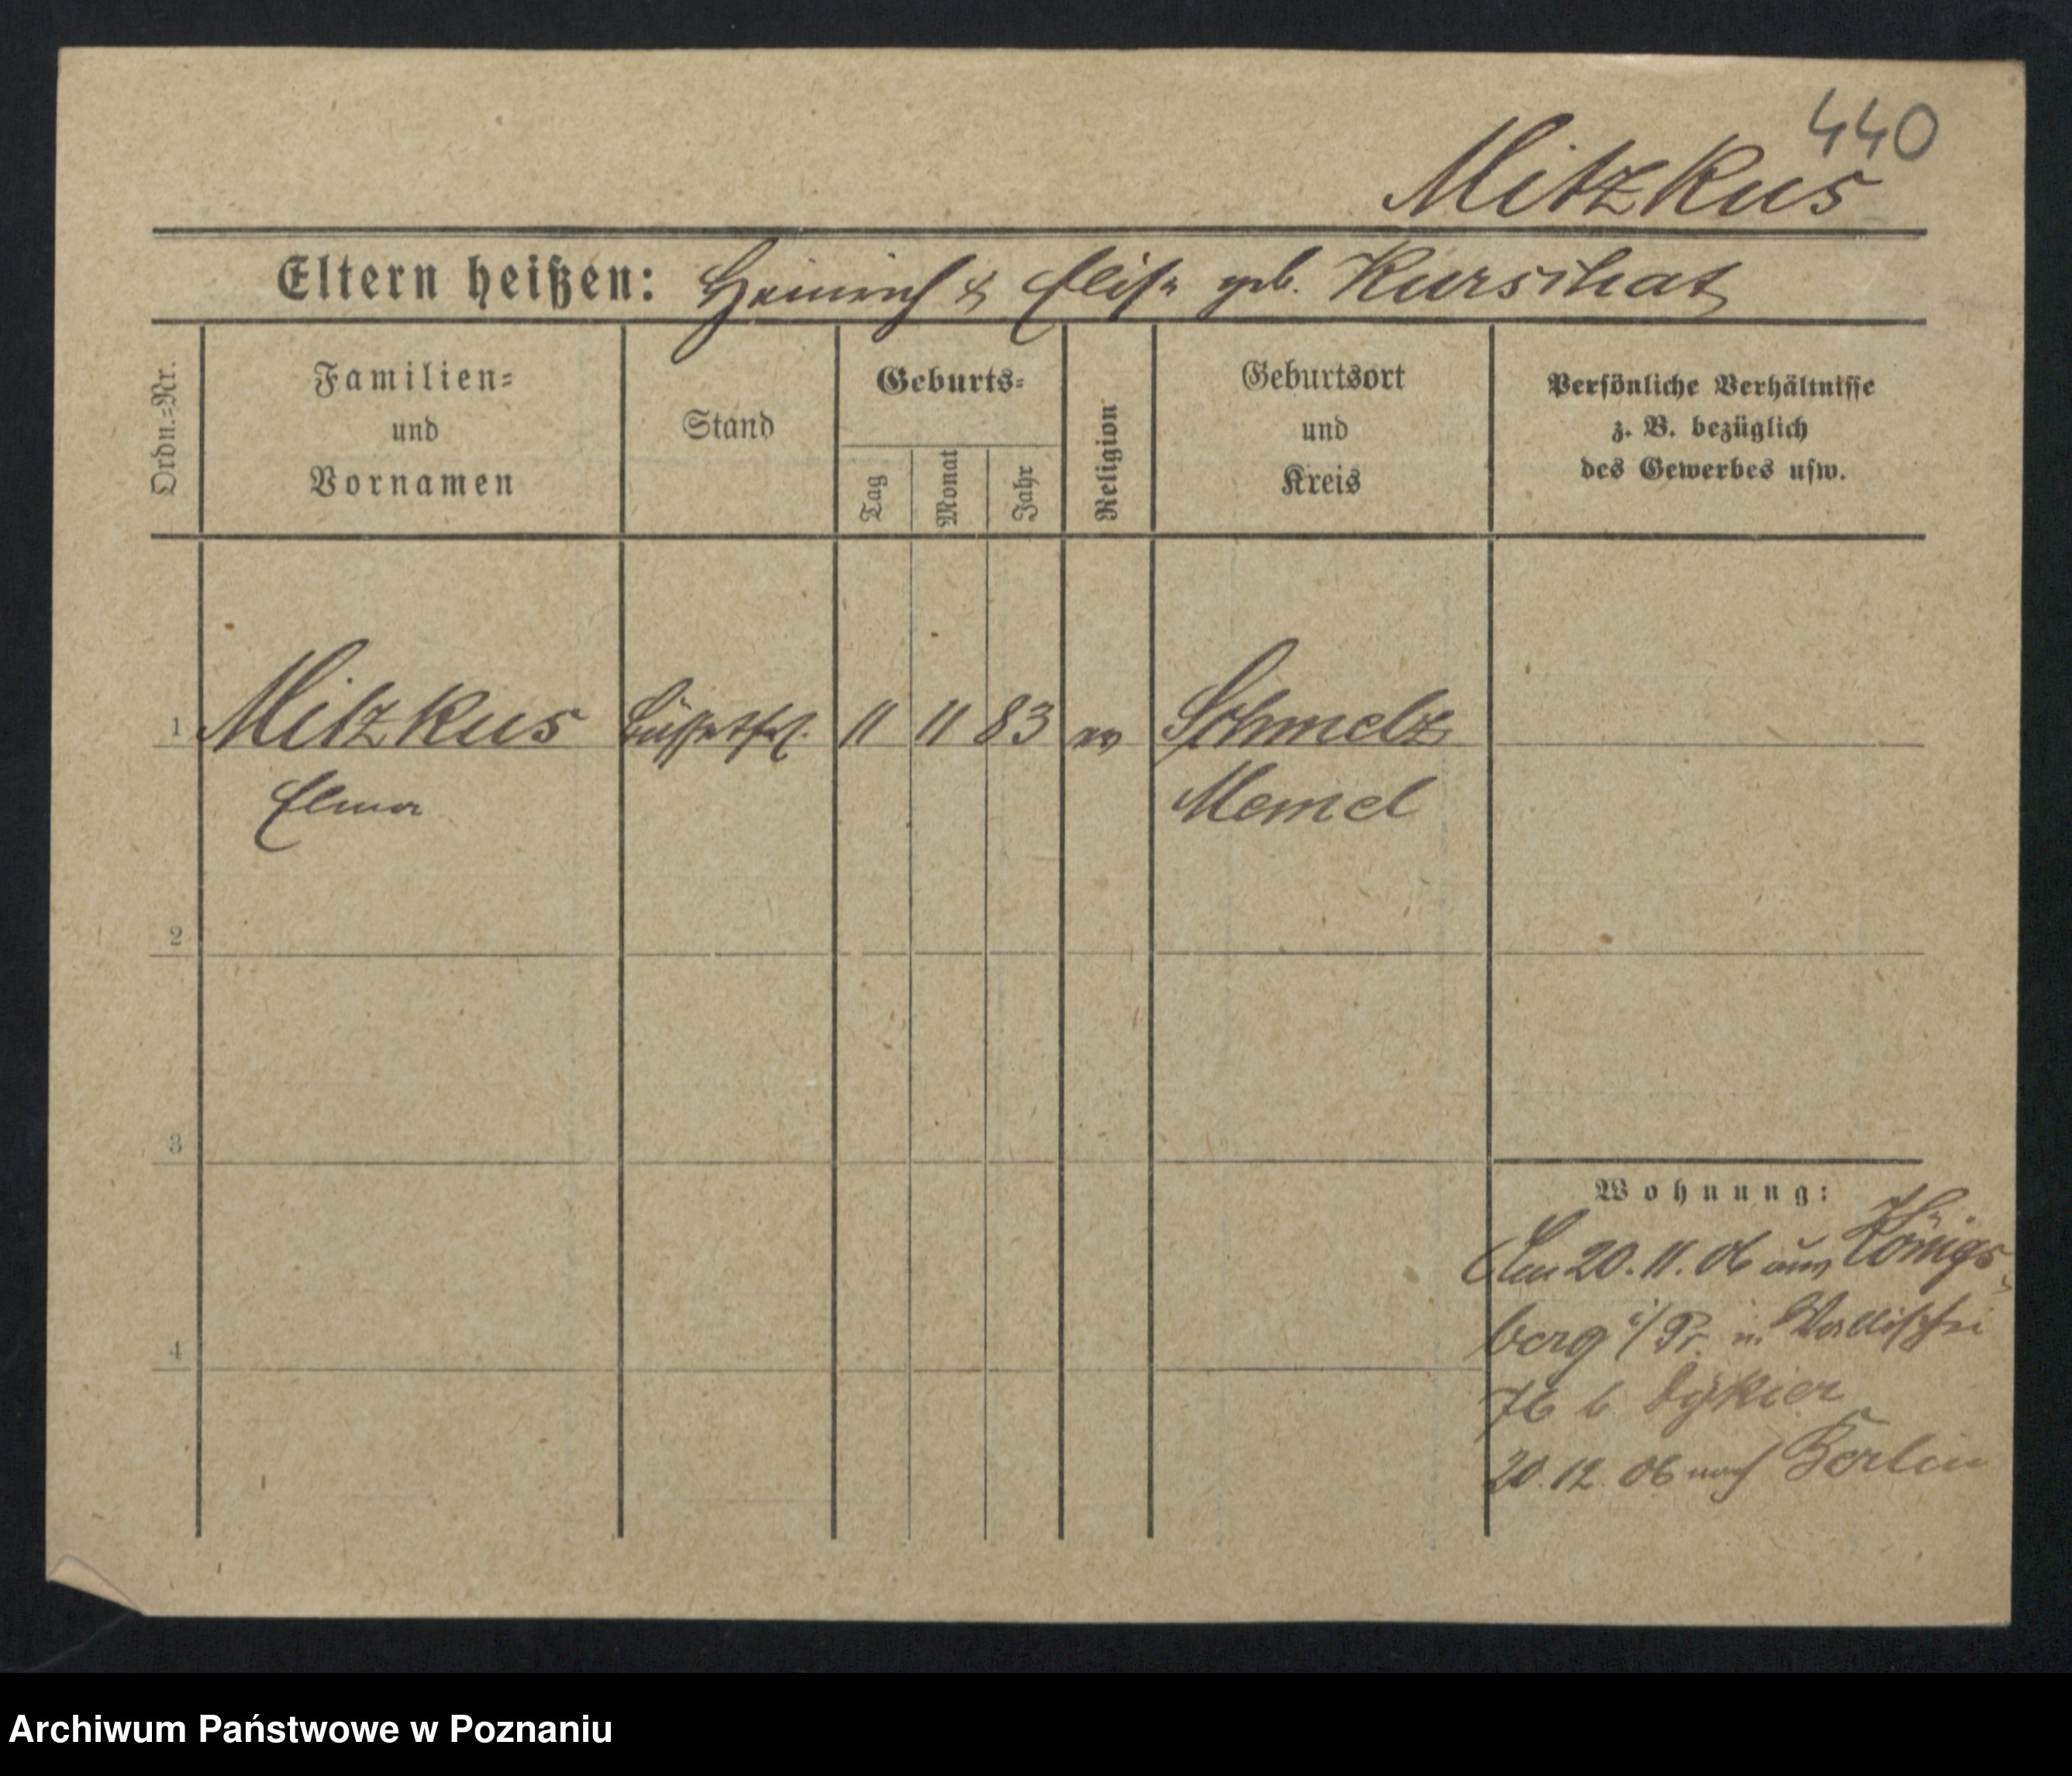 440
Mitzkus
Eltern heißen: Heinrich & Elise geb. Kurschat
Ordn.=Nr.
Familien=
und
Vornamen
Stand
Geburts=
Tag
Monat
Jahr
Religion
Geburtsort
und
Kreis
Persönliche Verhältnisse
z. B. bezüglich
des Gewerbes usw.
1 Mitzkus Büffetfrl. 11 11 83 ev Schmelz
Memel
2
3
4
Wohnung:
Am 20.11.06 aus Königs-
berg i/Pr. n. Wallischei
76 b Dykier
20.12.06 nach Berlin
Archiwum Państwowe w Poznaniu